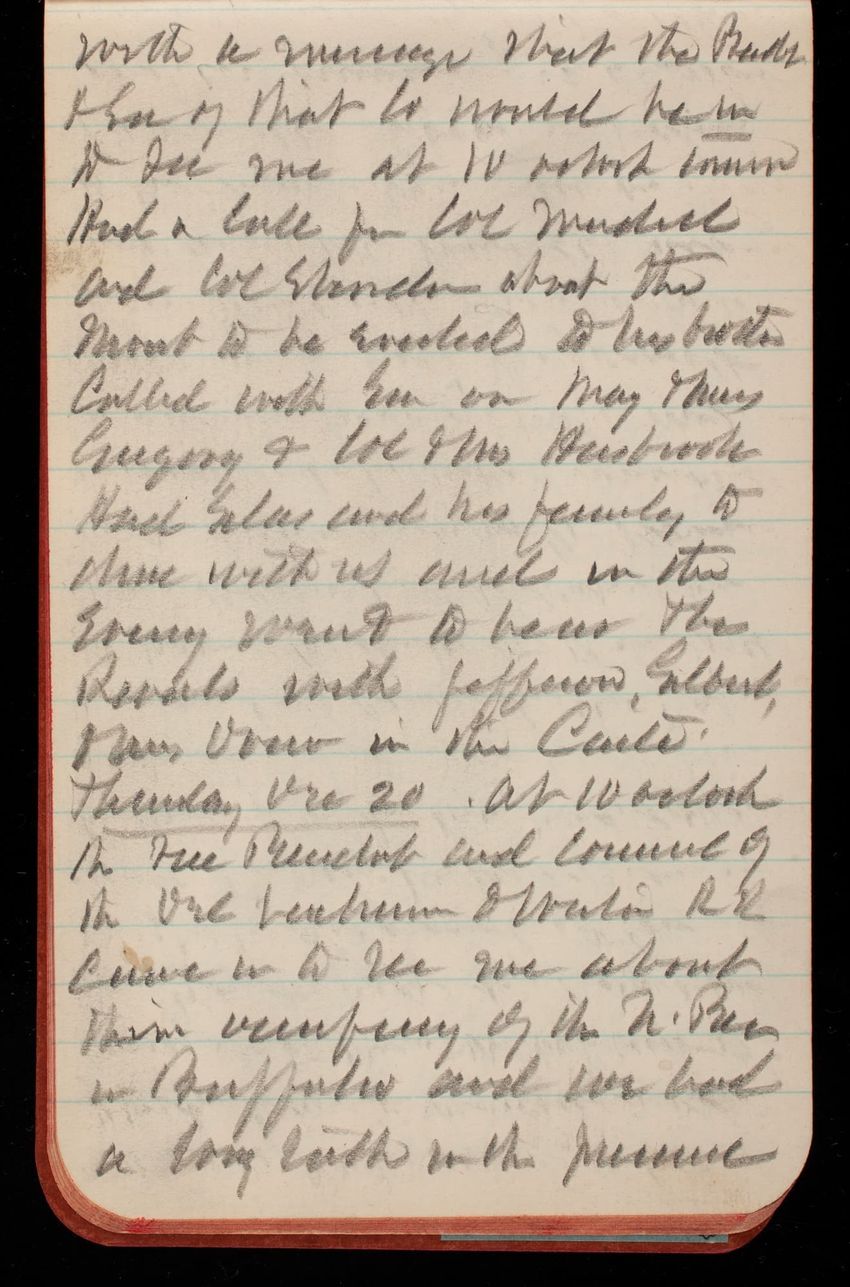 with a message that the Presdt
& Gen of that Co would be in
to see me at 10 oclock
Had a call fr Col
and Col about the
Mont to be erected to his brother
Called with Gen on May & Mrs
Gregory & Col & Mrs Hasbrook
Had and his family to
dine with us and in the
Evening went to hear the
Rivals with Jefferson, Gilbert,
& Mrs Drew in the Caste.
Thursday Dec 20. At 10 oclock
the Presidt and council of
the Del & Western RR
came in to see me about
their of the N. Pier
in Buffalo and we had
a long talk in the presence